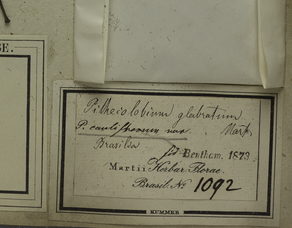 SE.
Pithecolobium glabratum
Mart.
P. cauliflorum var.
Brasilia
fid Bentham. 1873.
Martii Herbar. Florae
Brasil. No 1092
KUMMER